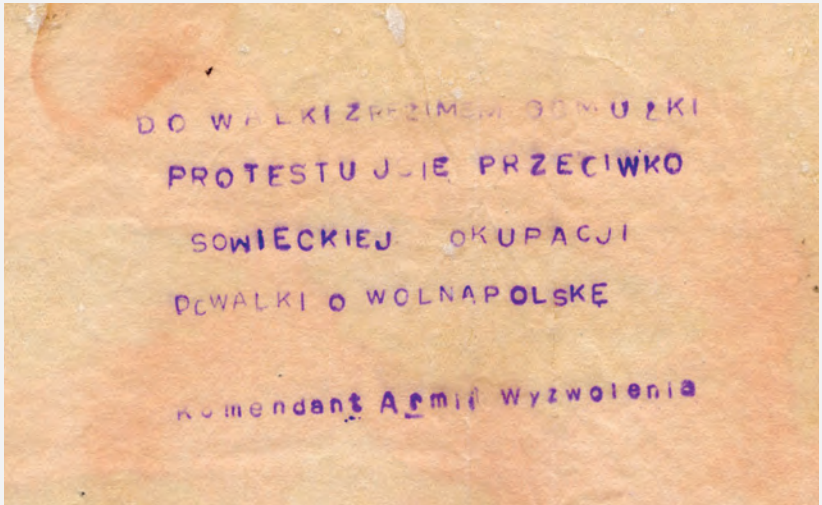 DO WALKI Z REZIMEM GOMUŁKI
PROTESTUJCIE PRZECIWKO
SOWIECKIEJ OKUPACJI
DO WALKI O WOLNA POLSKĘ
Komendant Armii Wyzwolenia